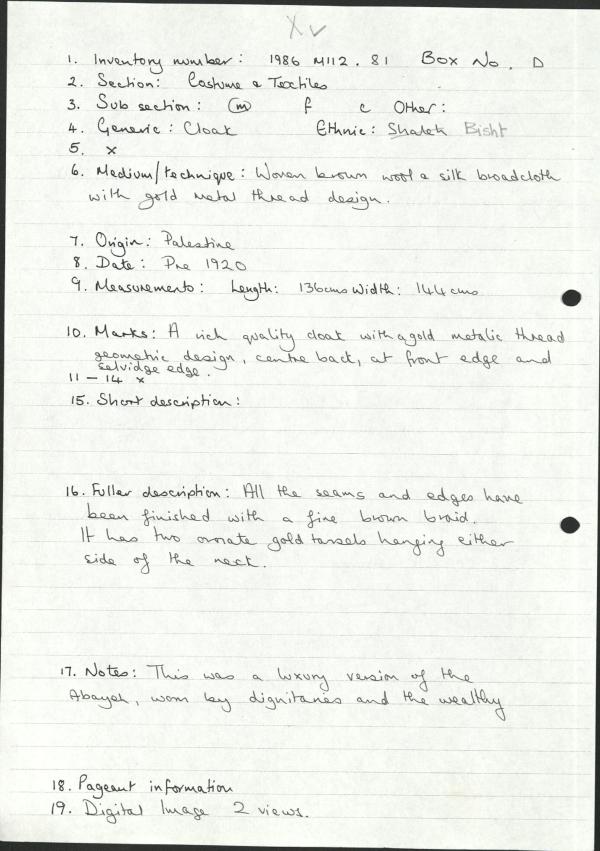 X ✓
1. Inventory number: 1986 M112.81 Box No. D
2. Section: Costume & Textiles
3. Sub section: m f c Other:
4. Generic: Cloak Ethnic: Shaleh Bisht
5. x
6. Medium/technique: Woven brown wool & silk broadcloth
with gold metal thread design.
7. Origin: Palestine
8. Date: Pre 1920
9. Measurements: Length: 136cms Width: 144cms
10. Marks: A rich quality cloak with a gold metalic thread
geometric design, centre back, at front edge and
selvidge edge.
11 – 14 x
15. Short description:
16. Fuller description: All the seams and edges have
been finished with a fine brown braid.
It has two ornate gold tassels hanging either
side of the neck.
17. Notes: This was a luxury version of the
Abayeh, worn by dignitaries and the wealthy
18. Pageant information
19. Digital Image 2 views.